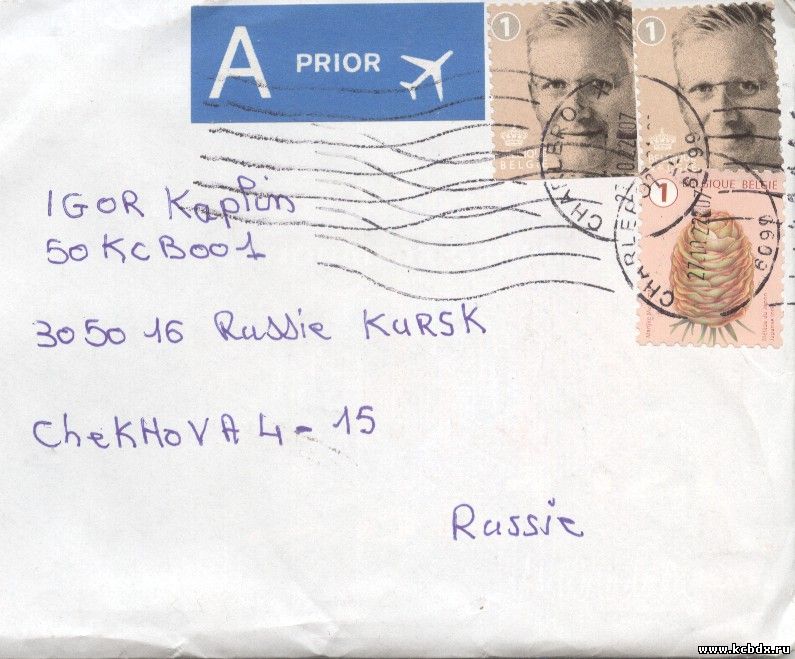 A PRIOR
1
1
BELGIË
CHARLEROI X
6099
1 BELGIQUE BELGIE
CHARLEROI X
6099
IGOR Kaplun
50 KCB001
305016 Russie KURSK
CheKHOVA 4-15
Russie
www.kcbdx.ru